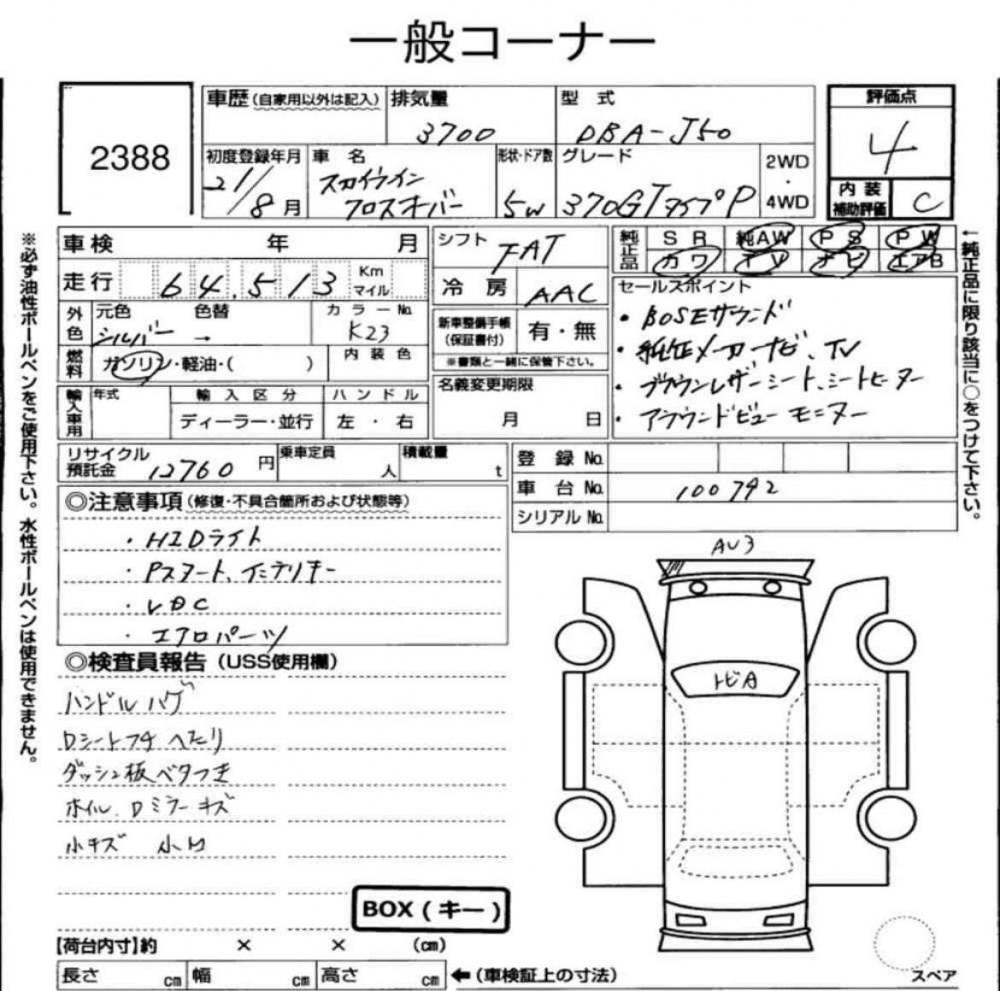 一般コーナー
2388
車歴(自家用以外は記入) 排気量 型式 評価点
3700 DBA-J50 4
初度登録年月 車名 形状・ドア数 グレード 2WD・4WD
21/8月 スカイライン クロスオーバー 5W 370GT タイプP
内装補助評価 C
車検 年 月
シフト FAT
純正品 SR 純AW PS PW
カワ TV ナビ エアB
走行 64,513 Km マイル
冷房 AAC
セールスポイント
・BOSEサウンド
・純正メーカーナビ、TV
・ブラウンレザーシート、シートヒーター
・アラウンドビューモニター
外色 元色 色替 カラーNo.
シルバー → K23
新車整備手帳(保証書付) 有・無
※書類と一緒に保管下さい。
燃料 ガソリン・軽油・( ) 内装色
名義変更期限 月 日
輸入車用 年式 輸入区分 ハンドル
ディーラー・並行 左・右
リサイクル預託金 12760円 乗車定員 人 積載量 t
登録No.
車台No. 100792
シリアルNo.
◎注意事項(修復・不具合箇所および状態等)
・HIDライト
・Pスタート、インテリキー
・VDC
・エアロパーツ
◎検査員報告(USS使用欄)
ハンドルハゲ
Dシートフチ へたり
ダッシュ板ベタつき
ホイル、Dミラーキズ
小キズ 小凹
AU3
トビA
BOX(キー)
【荷台内寸】約 × × (cm)
長さ cm 幅 cm 高さ cm ←(車検証上の寸法)
スペア
※必ず油性ボールペンをご使用下さい。水性ボールペンは使用できません。
←純正品に限り該当に○をつけて下さい。